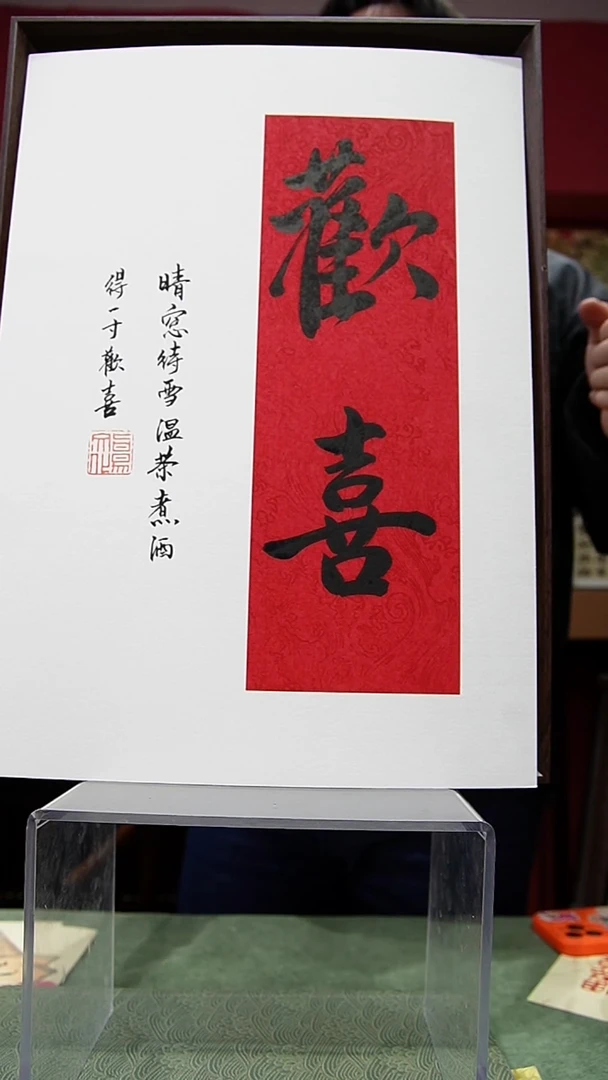 歡喜
晴窓待雪温茶煮酒
得一寸歡喜